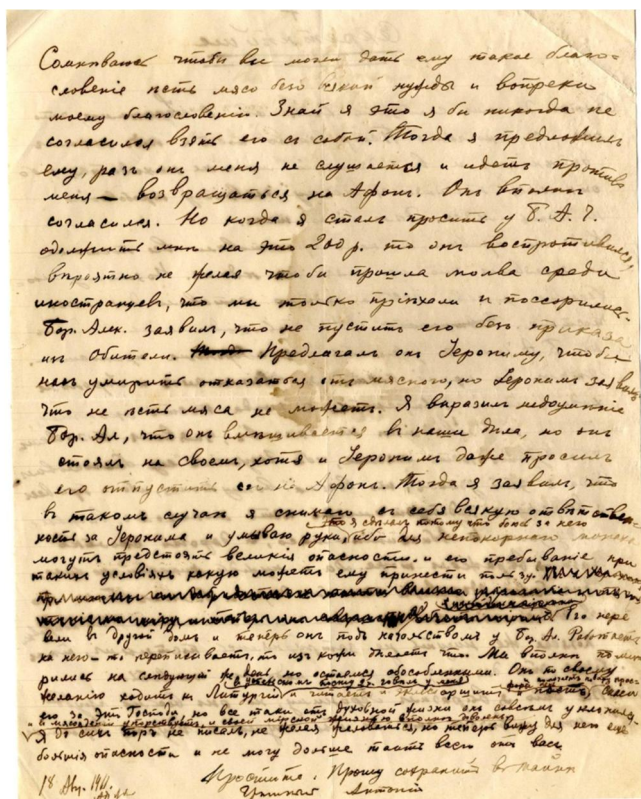 Сомневаюсь чтобы вы могли дать ему такое благо-
словеніе ѣсть мясо безъ всякой нужды и вопреки
моему благословенію. Знай я это я бы никогда не
согласился взять его съ собой. Тогда я предложилъ
ему, разъ онъ меня не слушается и идетъ противъ
меня — возвращаться на Афонъ. Онъ вполнѣ
согласился. Но когда я сталъ просить у Б. А. Ч.
одолжить мнѣ на это 200 р. то онъ воспротивился,
вѣроятно не желая чтобы прошла молва среди
иностранцевъ, что мы только пріѣхали и поссорились.
Бор. Алек. заявилъ, что не пуститъ его безъ приказа
изъ Обители. Предлагалъ онъ Іерониму, чтобы
насъ умирить отказаться отъ мясного, но Іеронимъ заявилъ
что не ѣсть мяса не можетъ. Я выразилъ недоумѣніе
Бор. Ал, что онъ вмѣшивается въ наши дѣла, но онъ
стоялъ на своемъ, хотя и Іеронимъ даже просилъ
его отпустить на Афонъ. Тогда я заявилъ, что
въ такомъ случаѣ я снимаю съ себя всякую отвѣтствен-
ность за Іеронима и умываю руки, ибо для непокорнаго монаха
это я сдѣлалъ потому что боюсь за него
могутъ предстоять великія опасности и его пребываніе при
такихъ условіяхъ какую можетъ ему принести пользу.
Его пере
вели въ другой домъ и теперь онъ подъ началствомъ у Бор. Ал. Работаетъ
на него — то переписываетъ, то Мы вполнѣ поми
рились на слѣдующій же день но остались обособленными. Онъ по своему
желанію ходитъ на Литургію
его за это Господь, но все таки отъ духовной жизни онъ совсѣмъ
Я до сихъ поръ не писалъ, не желая жаловаться, но теперь вижу для него еще
большія опасности и не могу дольше таить всего отъ васъ
Простите. Прошу сохранить въ тайнѣ
18 Авг. 1911. Антоній